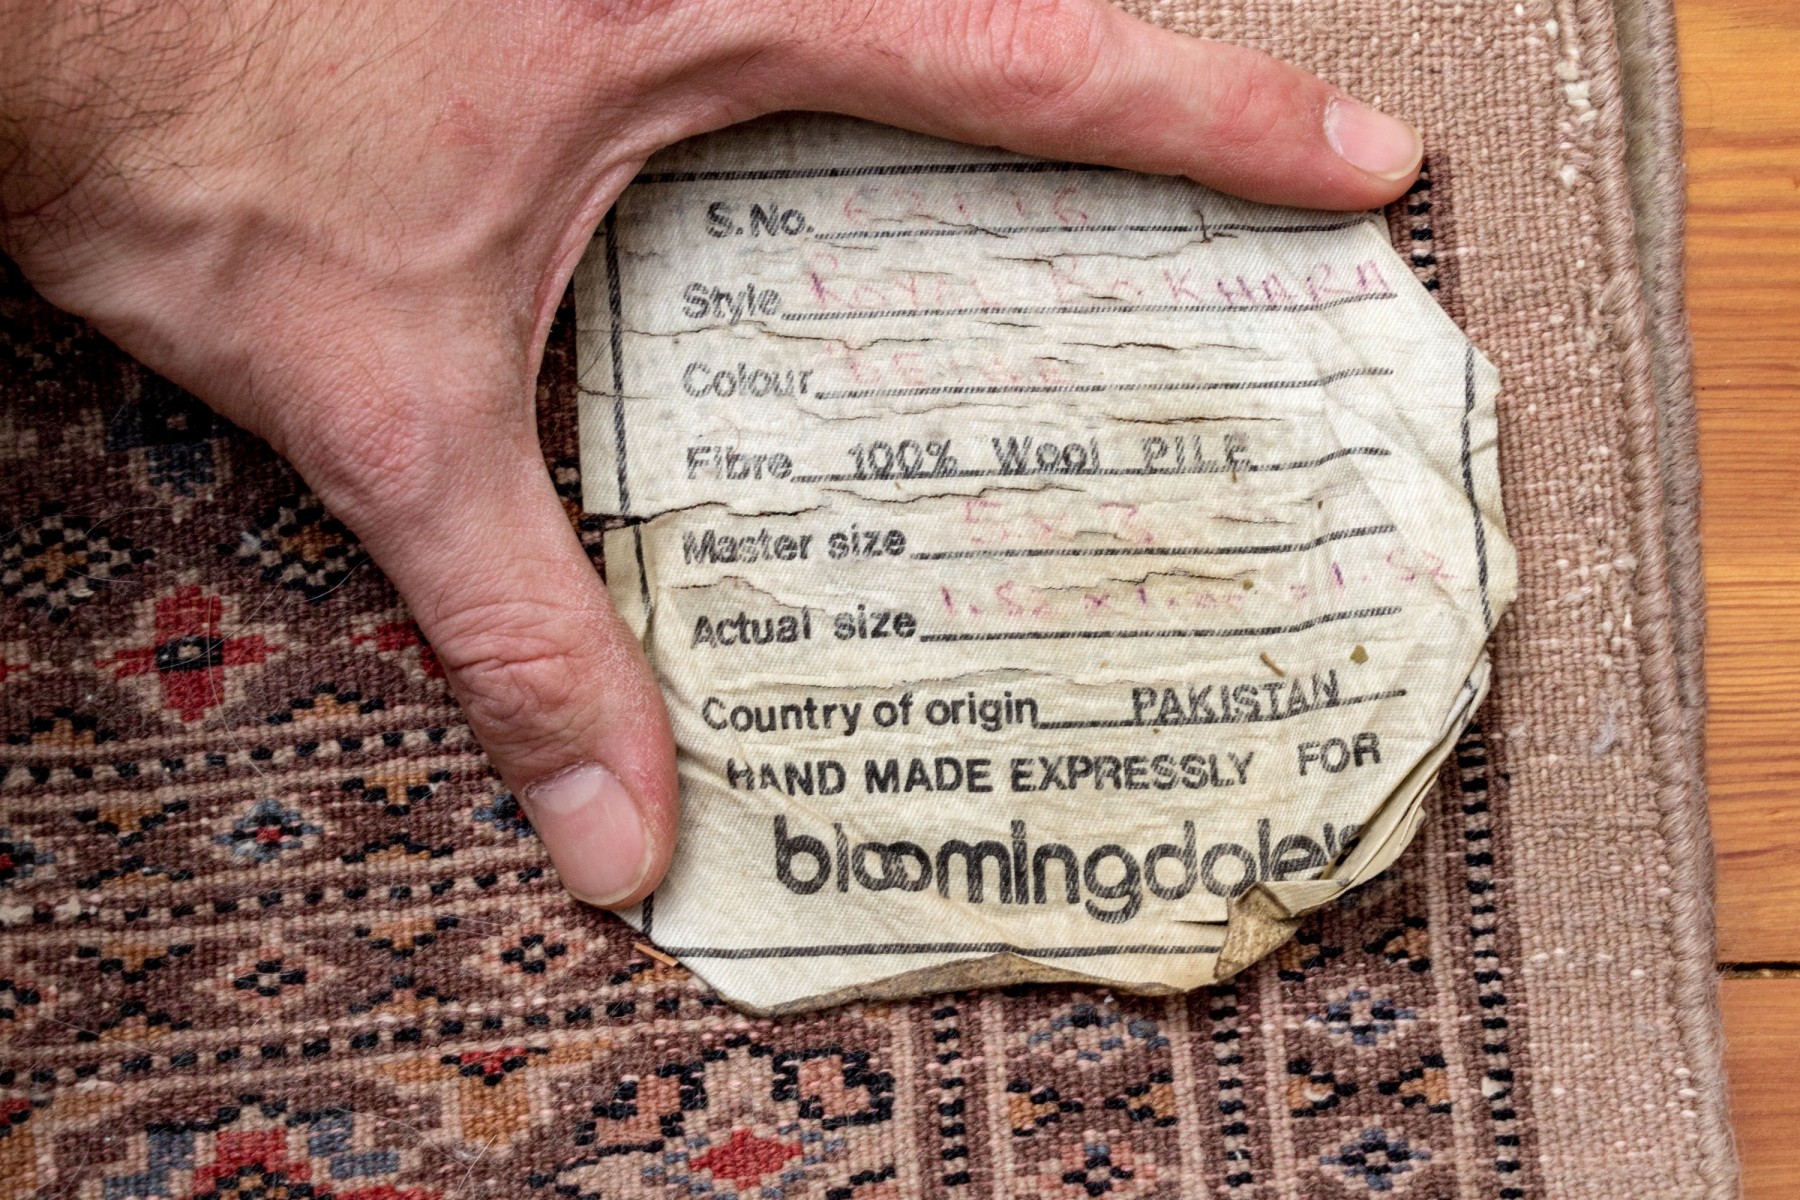 S.No.
Style ROYAL BOKHARA
Colour BEIGE
Fibre 100% Wool PILE
Master size 5 x 3
Actual size 1.52 x 1.00 = 1.52
Country of origin PAKISTAN
HAND MADE EXPRESSLY FOR
bloomingdale's